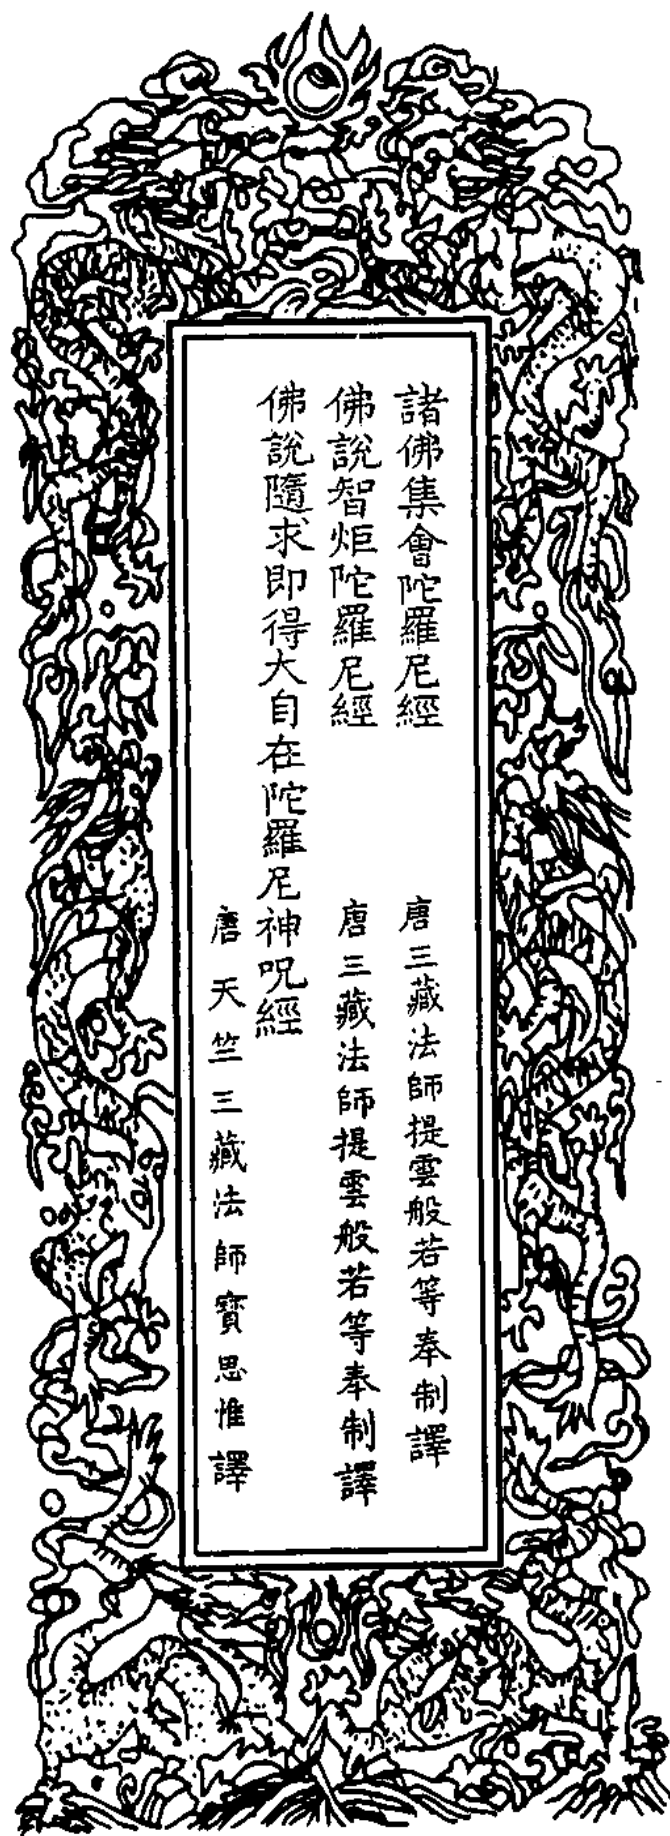 諸佛集會陀羅尼經
唐三藏法師提雲般若等奉制譯
佛說智炬陀羅尼經
唐三藏法師提雲般若等奉制譯
佛說隨求即得大自在陀羅尼神呪經
唐天竺三藏法師寶思惟譯